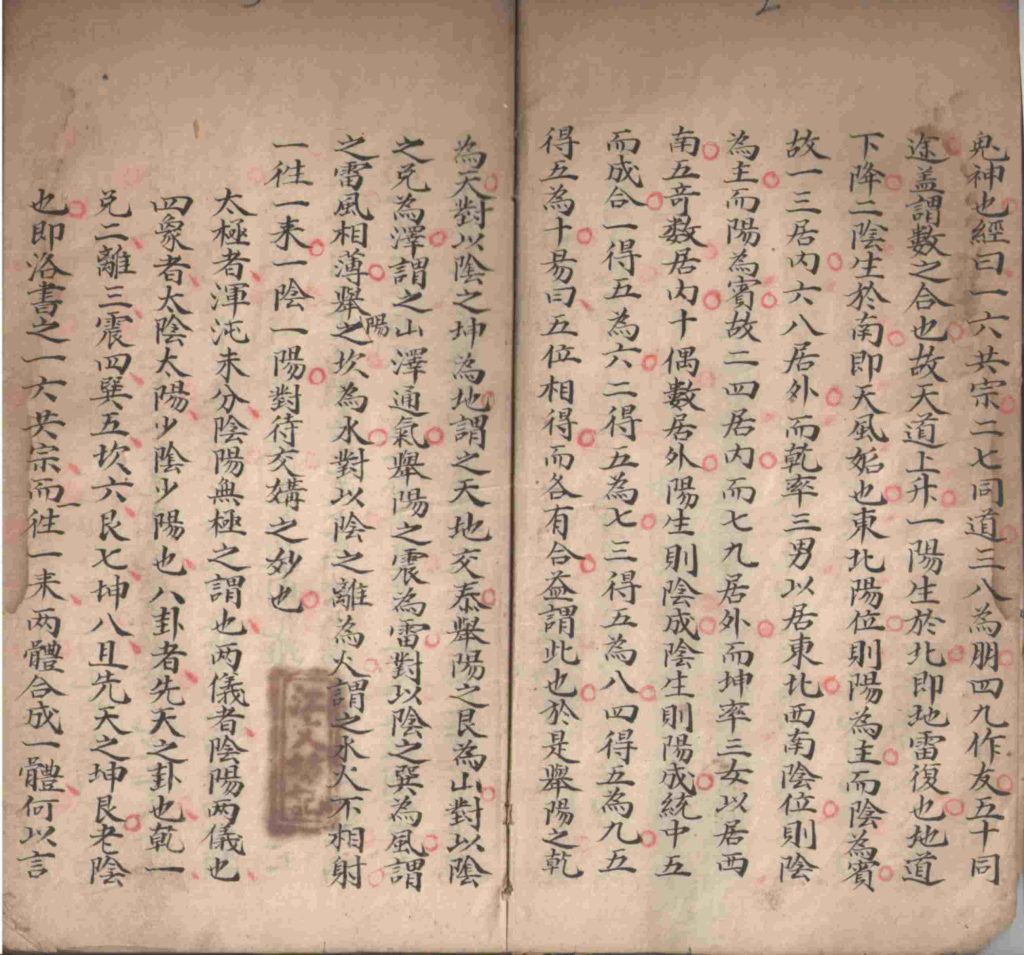 鬼神也經曰一六共宗二七同道三八為朋四九作友五十同
途盖謂數之合也故天道上升一陽生於北即地雷復也地道
下降二陰生於南即天風姤也東北陽位則陽為主而陰為賓
故一三居內六八居外而乾率三男以居東北西南陰位則陰
為主而陽為賓故二四居内而七九居外而坤率三女以居西
南五竒數居内十偶數居外陽生則陰成陰生則陽成統中五
而成合一得五為六二得五為七三得五為八四得五為九五
得五為十昜曰五位相得而各有合益謂此也於是舉陽之乾
為天對以陰之坤為地謂之天地交泰舉陽之艮為山對以陰
之兑為澤謂之山澤通氣舉陽之震為雷對以陰之巽為風謂
之雷風相薄舉之陽坎為水對以陰之離為火謂之水火不相射
一徃一来一陰一陽對待交媾之妙也
太極者渾沌未分陰陽無極之謂也两儀者陰陽两儀也
四象者太陰太陽少陰少陽也八卦者先天之卦也乾一
兑二離三震四巽五坎六艮七坤八且先天之坤艮老陰
也即洛書之一六共宗而一徃一来两體合成一體何以言